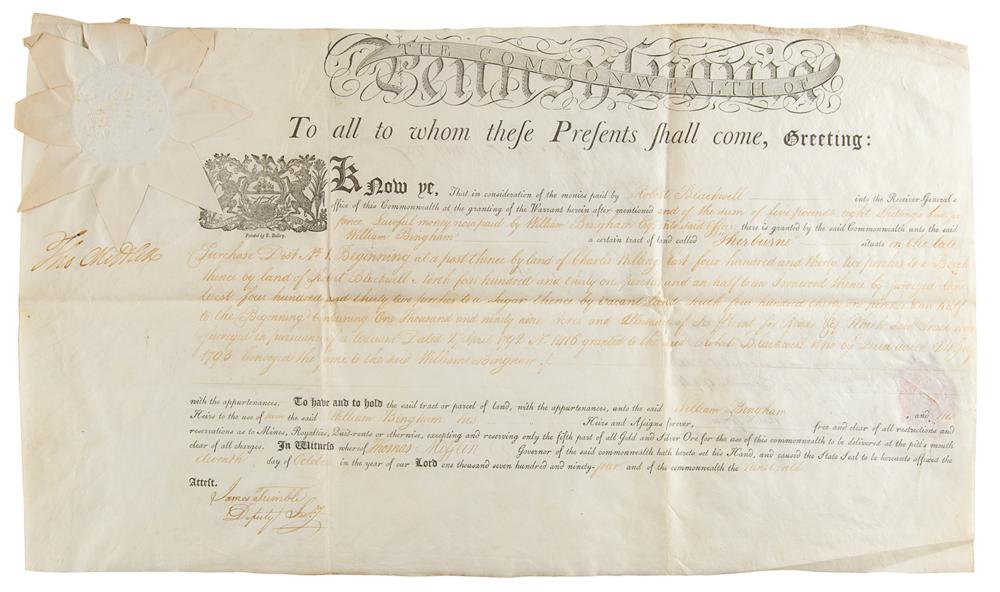 THE COMMONWEALTH OF
Pennsylvania
To all to whom theſe Preſents ſhall come, Greeting:
Know ye, That in conſideration of the monies paid by Robert Blackwell into the Receiver-General's
office of this Commonwealth at the granting of the Warrant herein after mentioned and of the sum of five pounds eight shillings
pence Lawful money now paid by William Bingham Esq into said Office there is granted by the said Commonwealth unto the said
William Bingham a certain tract of land called situate in the late
Printed by F. Bailey.
Tho Mifflin
Purchase Dist No 1. Beginning at a post thence by land of Charles Willing East four hundred and thirty two perches to a Beech
thence by land of Robert Blackwell North four hundred and thirty one perches and an half to an Ironwood thence by surveyed land
West four hundred and thirty two perches to a Sugar thence by vacant land South four hundred thirty one perches & an half
to the Beginning containing One thousand and ninety nine Acres and Allowance of Six P Cent for Roads &c Which said tract was
surveyed in pursuance of a Warrant Dated 2 April 1792 No 1416 granted to the said Robert Blackwell who by Deed dated
1793 conveyed the same to the said William Bingham
with the appurtenances. To have and to hold the said tract or parcel of land, with the appurtenances, unto the said William Bingham , and his
Heirs to the use of him the said William Bingham his Heirs and Aſſigns forever, free and clear of all reſtrictions and
reſervations as to Mines, Royalties, Quit-rents or otherwiſe, excepting and reſerving only the fifth part of all Gold and Silver Ore for the uſe of this commonwealth to be delivered at the pitt's mouth
clear of all charges. In Witneſs whereof Thomas Mifflin Governor of the ſaid commonwealth hath hereto ſet his Hand, and cauſed the State Seal to be hereunto affixed the
eleventh day of October in the year of our Lord one thouſand ſeven hundred and ninety-four and of the commonwealth the nineteenth
Atteſt.
James Trimble
Deputy Secy